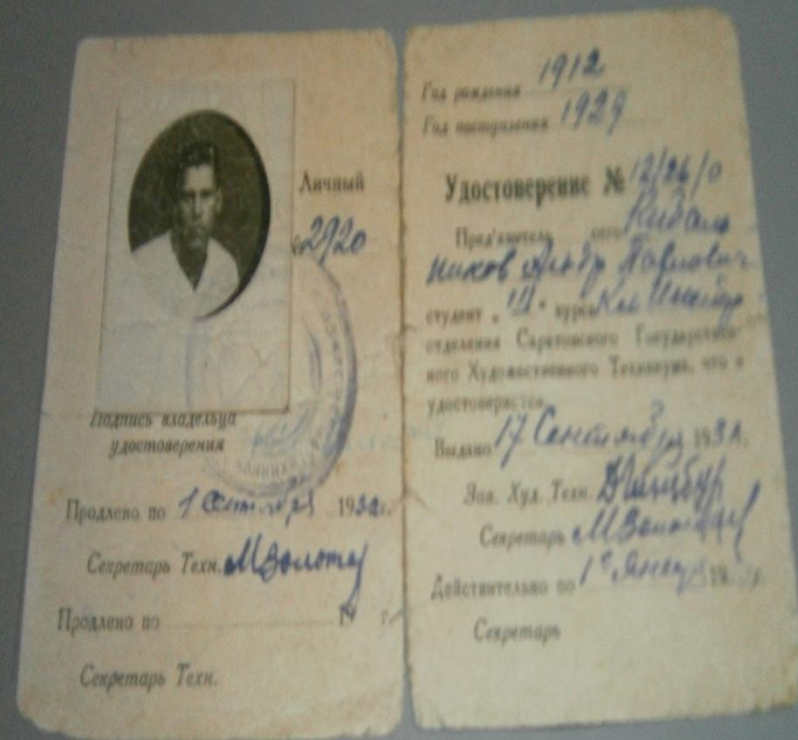 Личный
2920
Подпись владельца
удостоверения
Продлено по 1 Сентября 1932г.
Секретарь Техн. МЗолота
Продлено по 19 г.
Секретарь Техн.
Год рождения 1912
Год поступления 1929
Удостоверение № 12/26/0
Пред'явитель сего Кибаль
ников Альдр Павлович
студент „III“ курса
отделения Саратовского Государствен-
ного Художественного Техникума, что и
удостоверяется.
Выдано 17 Сентября 193
Зав. Худ. Техн.
Секретарь
Действительно по 1е Января 19 г.
Секретарь